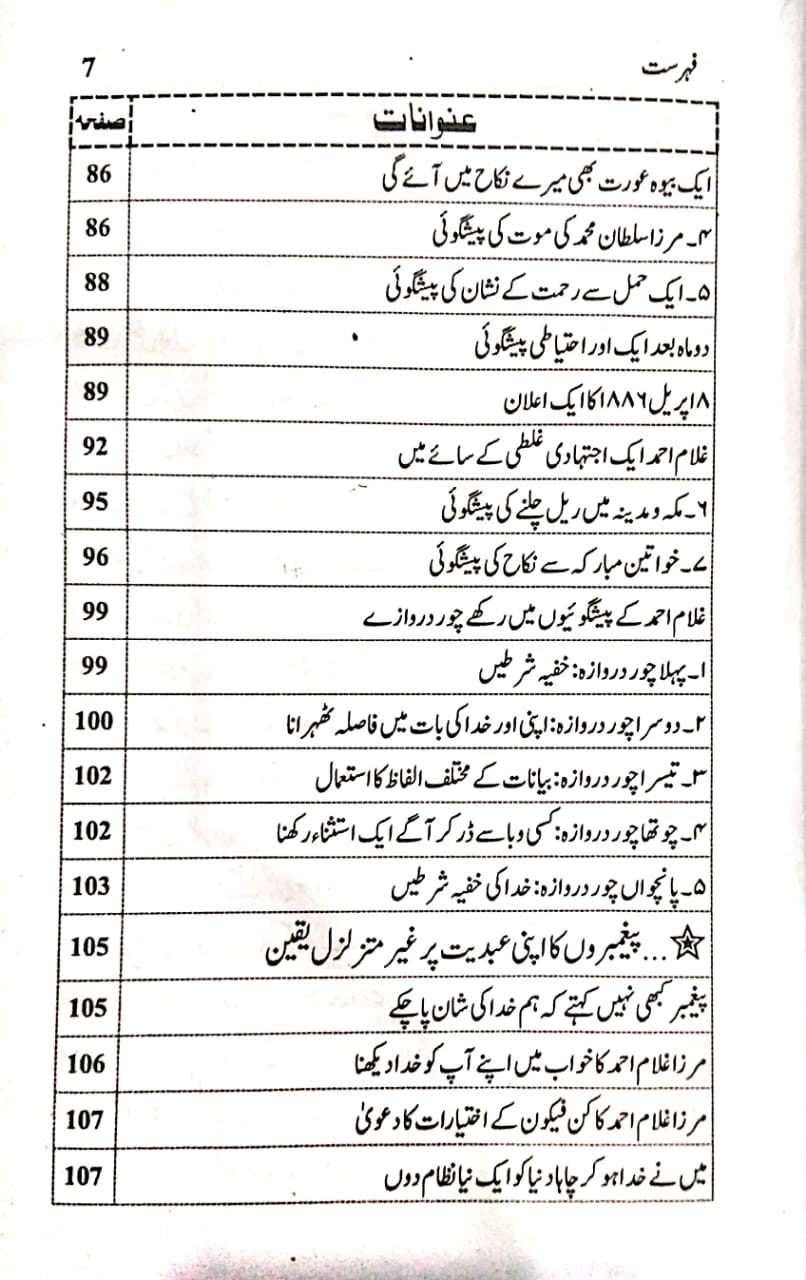 فہرست 7
عنوانات صفحہ
ایک بیوہ عورت بھی میرے نکاح میں آئے گی 86
۴۔ مرزا سلطان محمد کی موت کی پیشگوئی 86
۵۔ ایک حمل سے رحمت کے نشان کی پیشگوئی 88
دو ماہ بعد ایک اور احتیاطی پیشگوئی 89
۱۸ اپریل ۱۸۸۶ کا ایک اعلان 89
غلام احمد ایک اجتہادی غلطی کے سائے میں 92
۶۔ مکہ و مدینہ میں ریل چلنے کی پیشگوئی 95
۷۔ خواتین مبارکہ سے نکاح کی پیشگوئی 96
غلام احمد کے پیشگوئیوں میں رکھے چور دروازے 99
۱۔ پہلا چور دروازہ: خفیہ شرطیں 99
۲۔ دوسرا چور دروازہ: اپنی اور خدا کی بات میں فاصلہ ٹھہرانا 100
۳۔ تیسرا چور دروازہ: بیانات کے مختلف الفاظ کا استعمال 102
۴۔ چوتھا چور دروازہ: کسی وبا سے ڈر کر آگے ایک استثناء رکھنا 102
۵۔ پانچواں چور دروازہ: خدا کی خفیہ شرطیں 103
☆... پیغمبروں کا اپنی عبدیت پر غیر متزلزل یقین 105
پیغمبر کبھی نہیں کہتے کہ ہم خدا کی شان پا چکے 105
مرزا غلام احمد کا خواب میں اپنے آپ کو خدا دیکھنا 106
مرزا غلام احمد کا کن فیکون کے اختیارات کا دعویٰ 107
میں نے خدا ہو کر چاہا دنیا کو ایک نیا نظام دوں 107